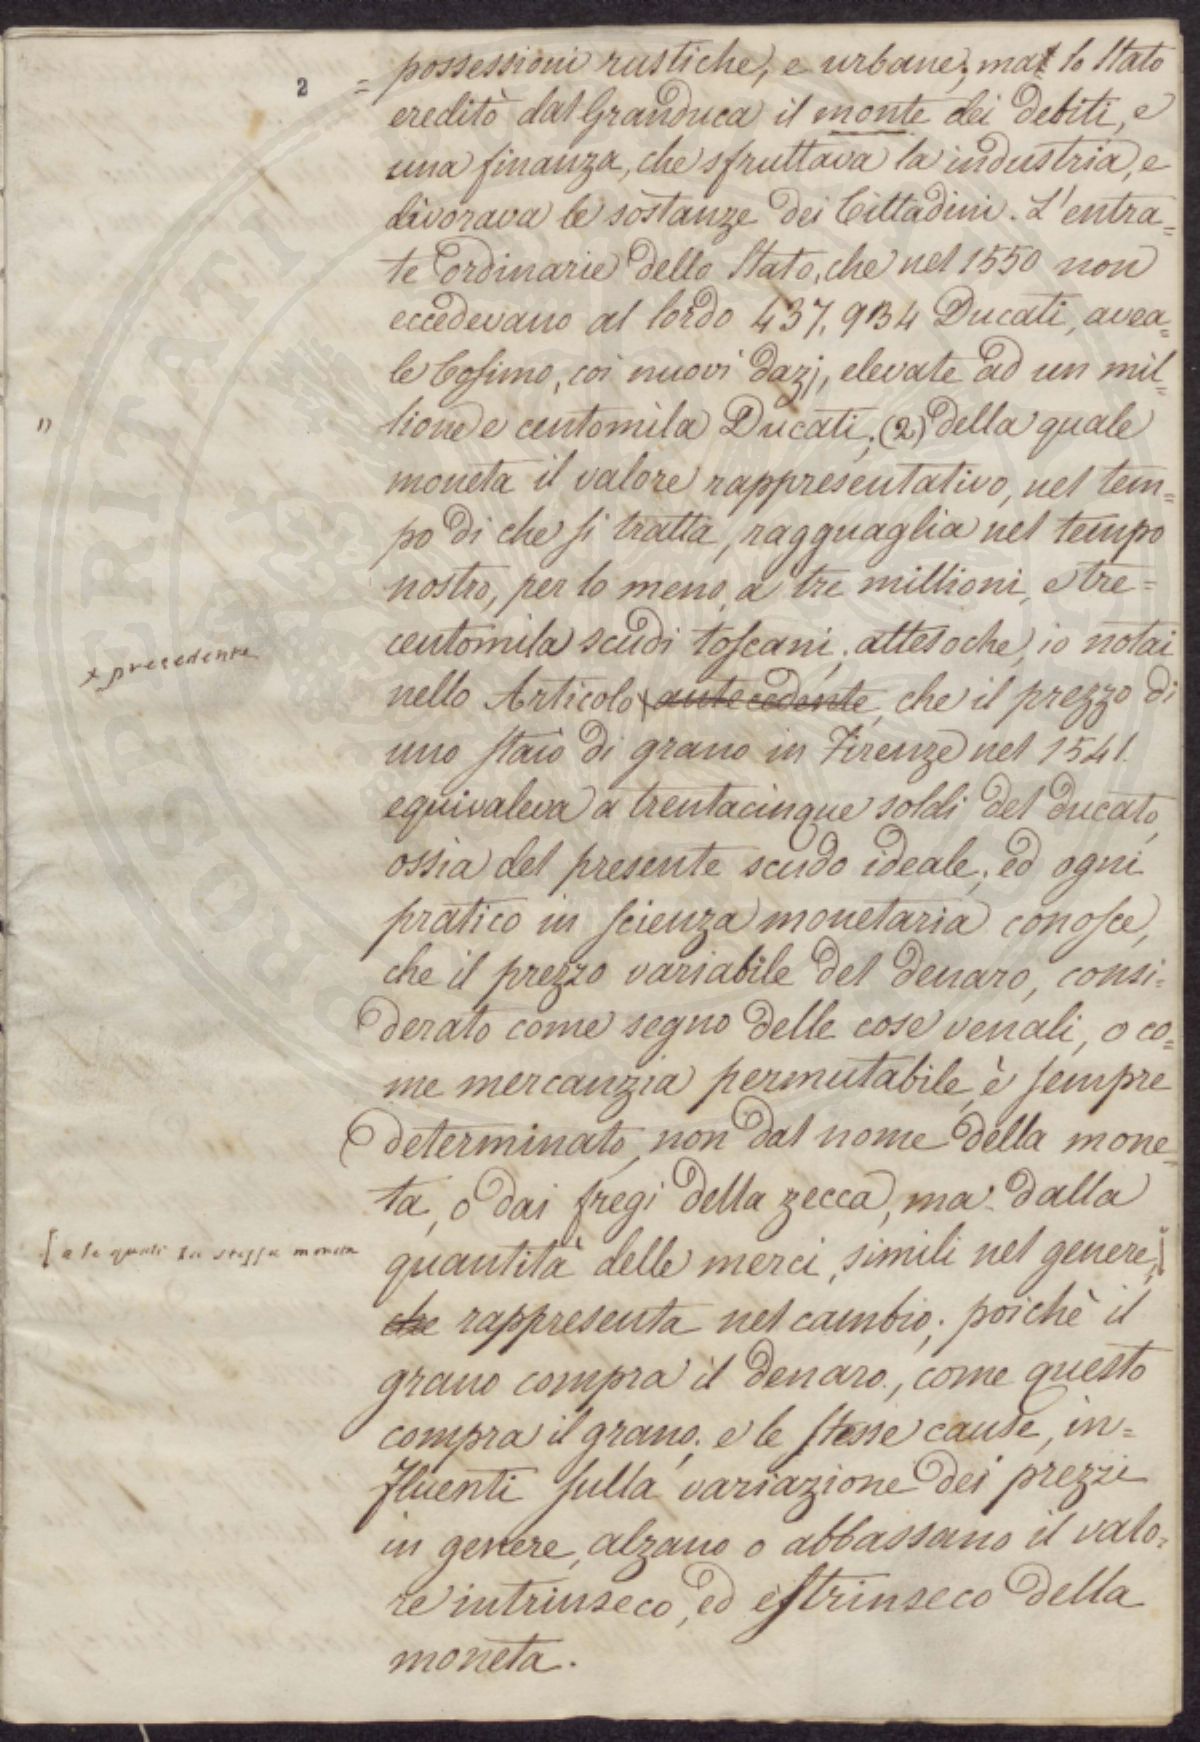 2
= possessioni rustiche, e urbane; ma lo Stato
ereditò dal Granduca il monte dei debiti, e
una finanza, che sfruttava la industria, e
divorava le sostanze dei Cittadini. L'entra=
te ordinarie dello Stato, che nel 1550 non
eccedevano al lordo 437,934 Ducati, avea=
le Cosimo, coi nuovi dazj, elevate ad un mil=
lione e centomila Ducati; (2) della quale
"
moneta il valore rappresentativo, nel tem=
po di che si tratta, ragguaglia nel tempo
nostro, per lo meno, a tre millioni, e tre=
centomila scudi toscani; attesoche, io notai
x precedente
nello Articolo x antecedente, che il prezzo di
uno staio di grano in Firenze nel 1541.
equivaleva a trentacinque soldi del ducato,
ossia del presente scudo ideale; ed ogni
pratico in scienza monetaria conosce,
che il prezzo variabile del denaro, consi=
derato come segno delle cose venali, o co=
me mercanzia permutabile, è sempre
determinato, non dal nome della mone=
ta, o dai fregi della zecca, ma dalla
[e le quali la stessa moneta
quantità delle merci, simili nel genere,]
che rappresenta nel cambio; poichè il
grano compra il denaro, come questo
compra il grano; e le stesse cause, in=
fluenti sulla variazione dei prezzi
in genere, alzano o abbassano il valo=
re intrinseco, ed estrinseco della
moneta.
PROSPERITATI